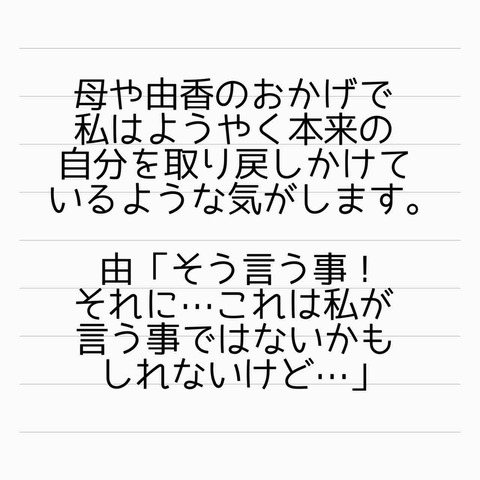 母や由香のおかげで
私はようやく本来の
自分を取り戻しかけて
いるような気がします。
由「そう言う事！
それに…これは私が
言う事ではないかも
しれないけど…」